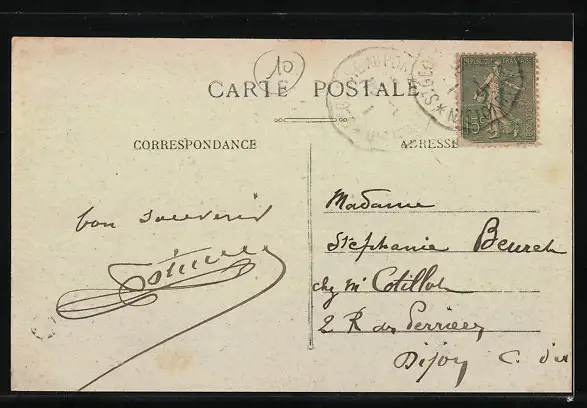 10
CARTE POSTALE
CORRESPONDANCE
ADRESSE
bon souvenir
Madame
Stéphanie Beuret
chez Mr Cotillot
2 R des Perrières
Dijon C. d'or